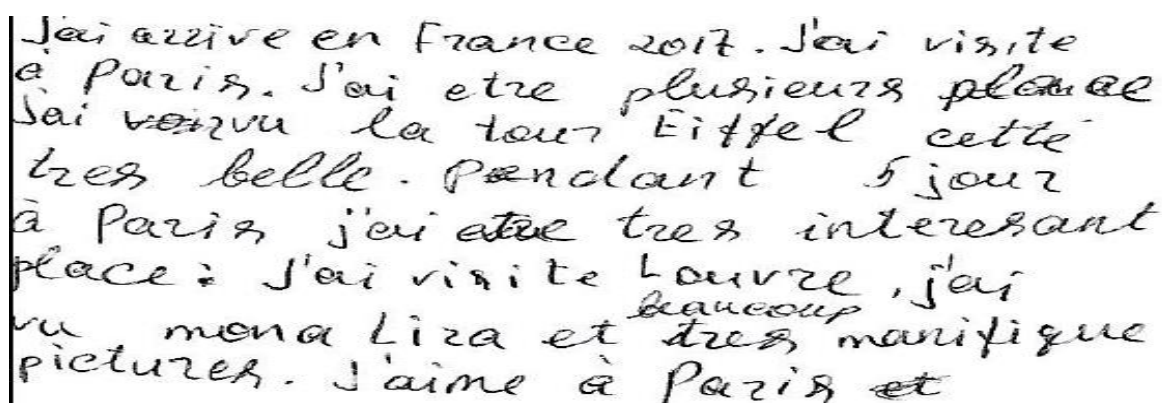 J'ai arrive en France 2017. J'ai visite
à Paris. J'ai etre plusieurs place
J'ai vu la tour Eiffel cette
tres belle. Pendant 5 jour
à Paris j'ai etre tres interesant
place: J'ai visite Louvre, j'ai
vu mona Liza et beaucoup manifique
pictures. J'aime à Paris